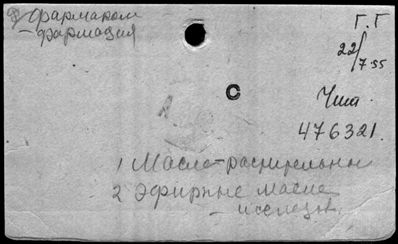 фармаком
- фармация
Г. Г
22/7·55
с
Чит.
476321.
1 Масла-растительн
2 Эфирные масла
- исследов.